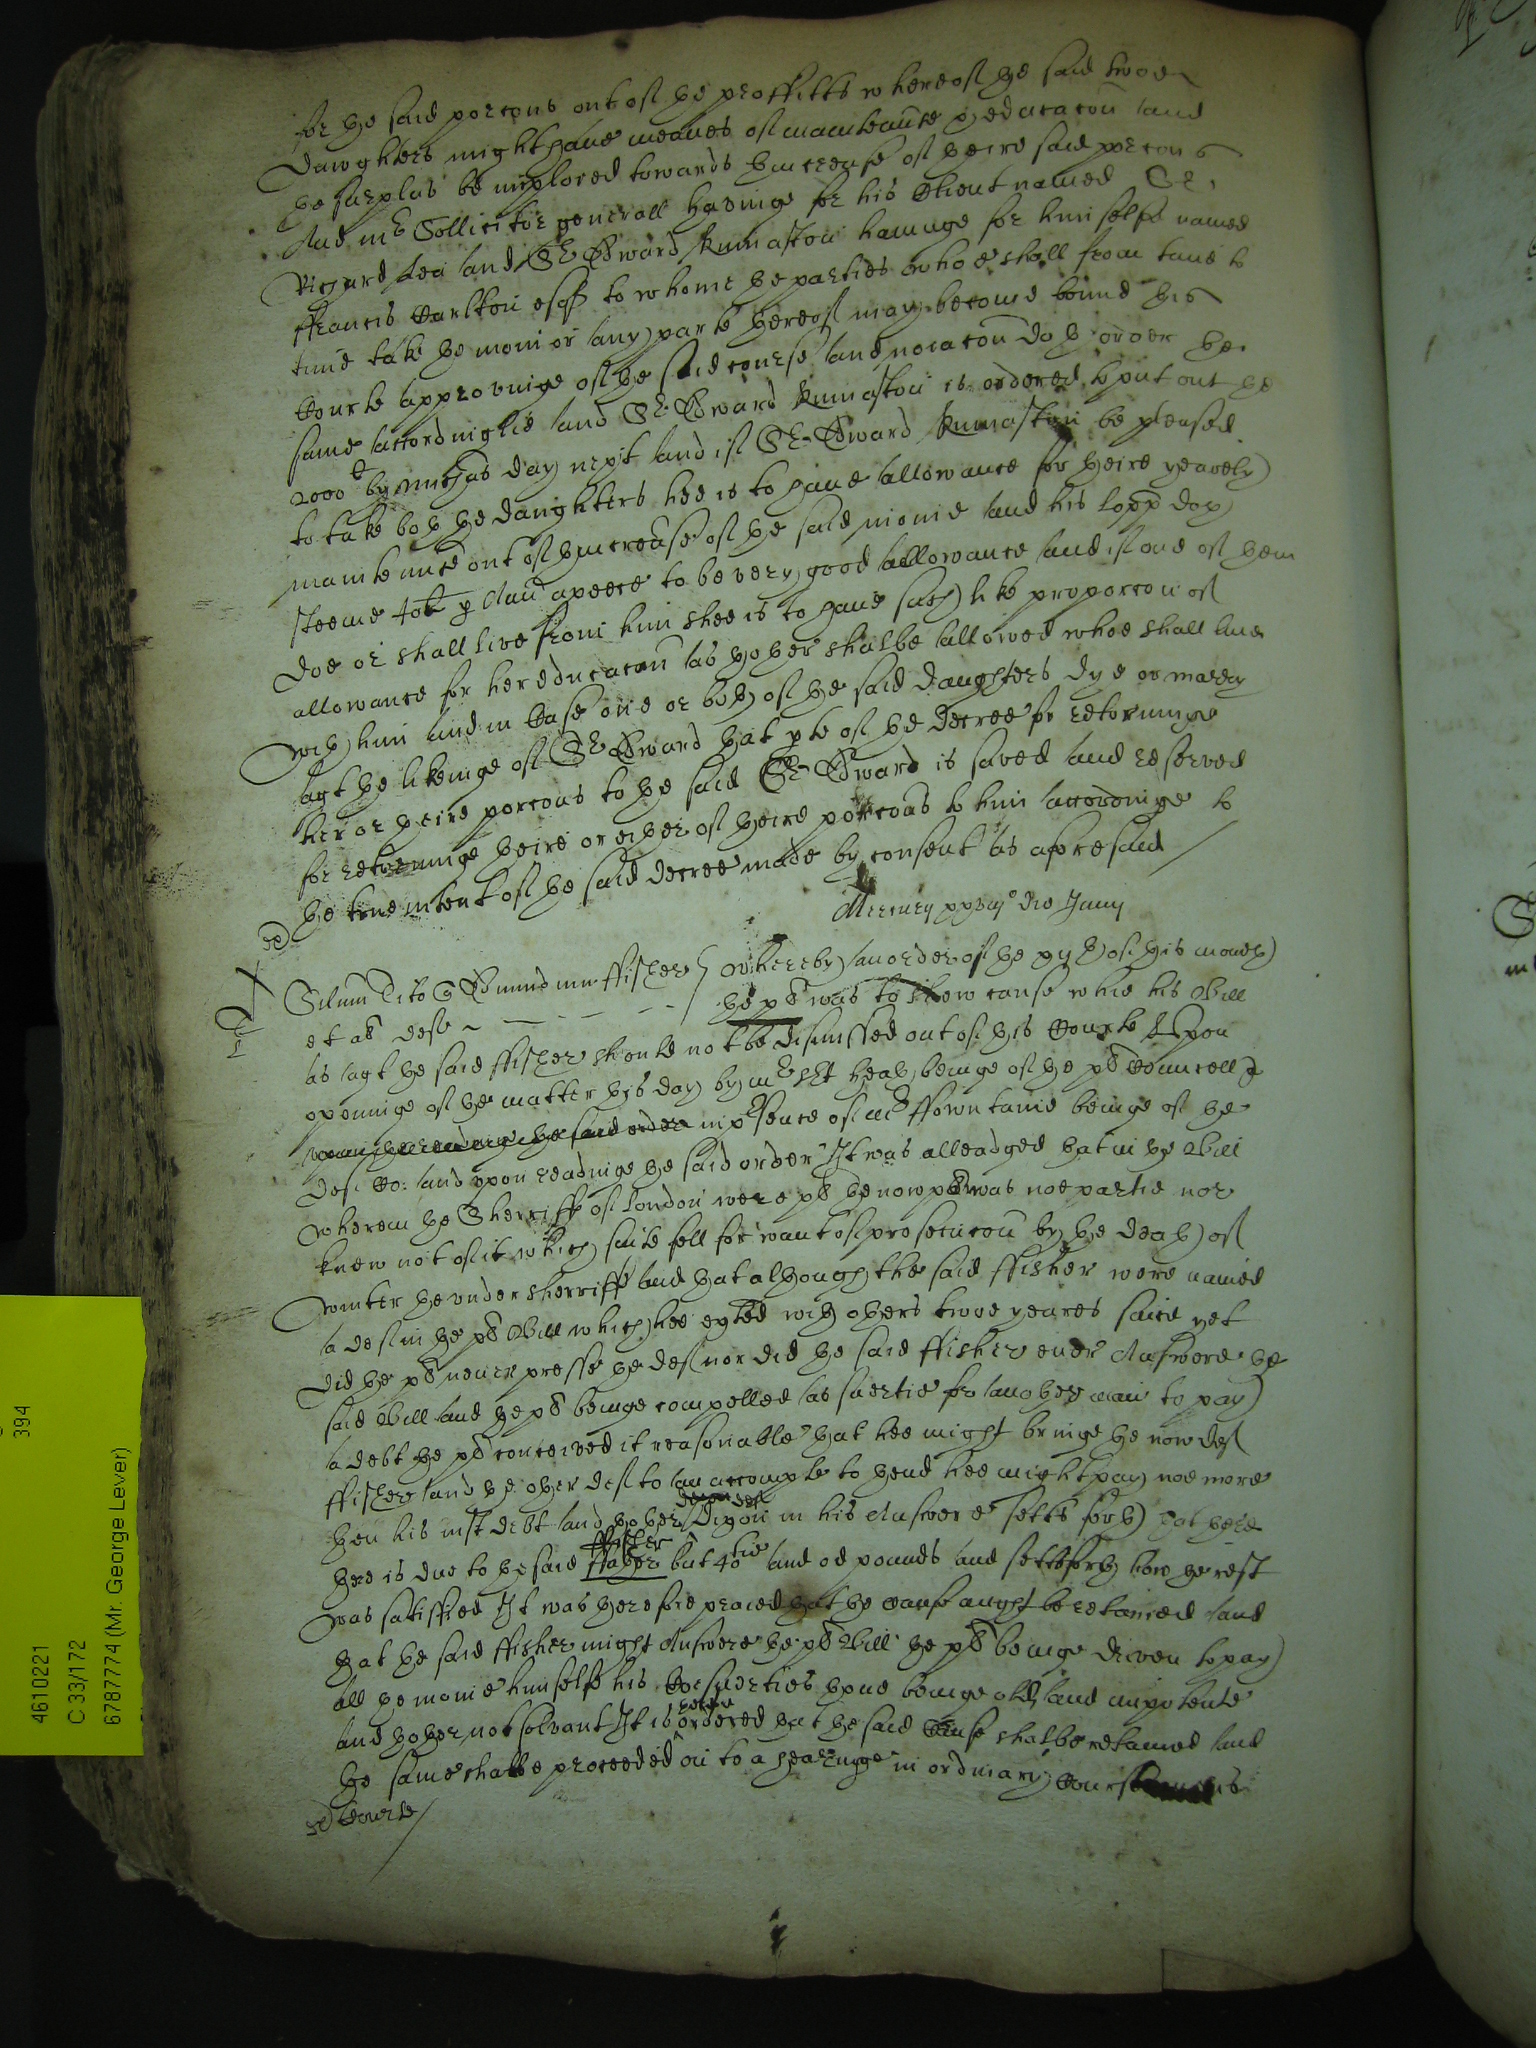 for the said porcons out of the proffitts whereof the said twoe
Dawghters might have meanes of mainteaunce & educacon and
the surplus be imployed towards thincrease of theire said porcons
And mr Sollicitor generall havinge for his Client named Sr
Richard Lea and Sr Edward Kinnaston havinge for himselfe named
ffrancis Carlton esqr to whome the parties whoe shall from time to
time take the moni or any parte thereof may become bound this
Courte approvinge of the said course and nominacon doth order the
same accordinglie and Sr Edward Kinnaston is ordered to put out the
2000li by day next and if Sr Edward Kinnaston be pleased
to take both the daughters hee is to have allowance for theire yearely
maintenance out of thincrease of the said monie and his Lopp doth
steeme 40li p Ann apeece to be very good allowance and if one of them
doe or shall live from him shee is to have such like proporcon of
allowance for her educacon as thother shalbe allowed whoe shall live
with him and in Case one or both of the said daughters dye or marry
agt the likeinge of Sr Edward that pte of the decree for retorninge
her or theire porcons to the said Sr Edward is saved and reserved
for retorninge theire or either of theire porcons to him accordinge to
the true intent of the said decree made by consent as aforesaid
Mercurij xxviij° die Junij
Edmund ffisher Whereby an order of the xxth of this moneth
et al def the pl was to shew cause whie his Bill
as agt the said ffisher should not be dismissed out of this Courte Upon
openinge of the matter this day by mr Heath beinge of the pl Councell &
upon the readinge the said order in psence of mr ffowntaine beinge of the
def Co: and upon readinge the said order It was alleadged that in the Bill
wherein the Sherriffs of London were pl the now pl was noe partie nor
knew not of it which suite fell for want of prosecucon by the death of
winter the undersherriffe and that although the said ffisher were named
a def in the pl Bill which hee exhibited with others twoe yeares since yet
did the pl never presse the def nor did the said ffisher ever Answere the
said Bill and the pl beinge compelled as suertie for another man to pay
a debt the pl conceived it reasonable that hee might bringe the now def
ffisher and the other def to an accompte to thend hee might pay noe more
then his just debt and thother Dixon in his Answere setts forth that there
def
ffisher
there is due to the said but 40tie and od pounds and setteth forth how the rest
was satisfied It was therefore praied that the cause might be retained and
that the said ffisher might Answere the pl Bill the pl beinge driven to pay
all the monie himselfe his Cosuerties thone beinge old and impotente
and thother not solvant It is ordered that the said Cause shalbe retained and
the same shalbe proceeded on to a hearinge in ordinary Course
Courte
394
4610221
C 33/172
6787774 (Mr. George Lever)